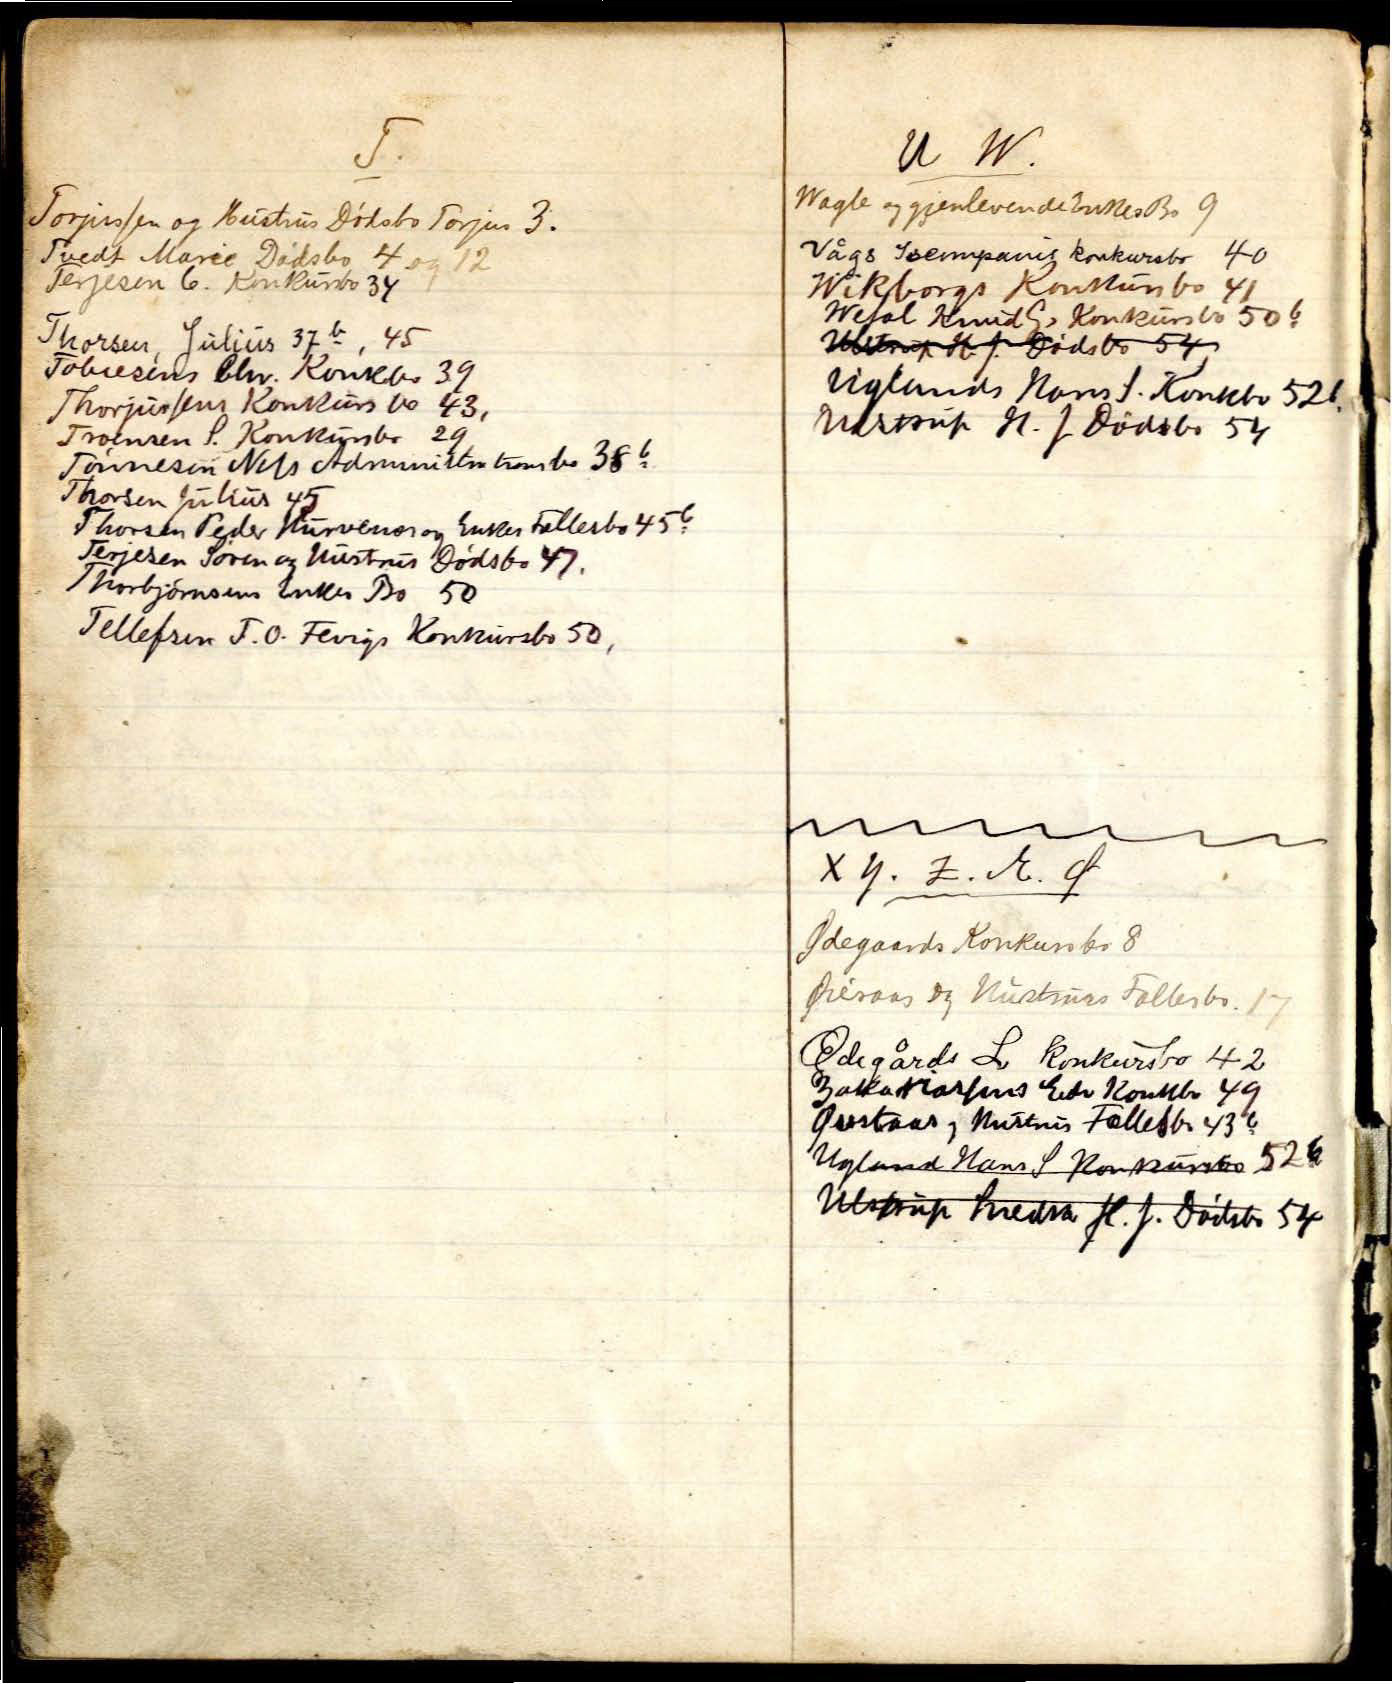 T.
Torjussen og Hustrus Dödsbo Torjus 3.
Tvedt Marie Dödsbo 4 og 12
Terjesen C. Konkursbo 34
Thorsen, Julius 37 b, 45
Tobiesens Chr. Konkbo 39
Thorjussens Konkursbo 43,
Troensen S. Konkursbo 29
Tönnesen Nels Administrationsbo 38 b
Thorsen Julius 45
Thorsen Peder Hurvenes og Enkes Fællesbo 45 b
Terjesen Sören og Hustrus Dödsbo 47.
Thorbjörnsens Enkes Bo 50
Tellefsen T. O. Fevigs Konkursbo 50,
U W.
Wagle og gjenlevende Enkes Bo 9
Vågs Iscompanis konkursbo 40
Wikborgs Konkursbo 41
Knud Konkursbo 50 b
Ulstrup H. J. Dödsbo 54
Uglands Hans S. Konkbo 52 b.
Ulstrup H. J. Dödsbo 54
X Y. Z. Æ. Ø
Ødegaards Konkursbo 8
og Hustrues Fællesbo. 17
Ødegårds L. konkursbo 42
Zakariassens Edv Konkbo 49
og Hustrus Fællesbo 43 b
Ugland Hans S Konkursbo 52 b
Ulstrup H. J. Dödsbo 54